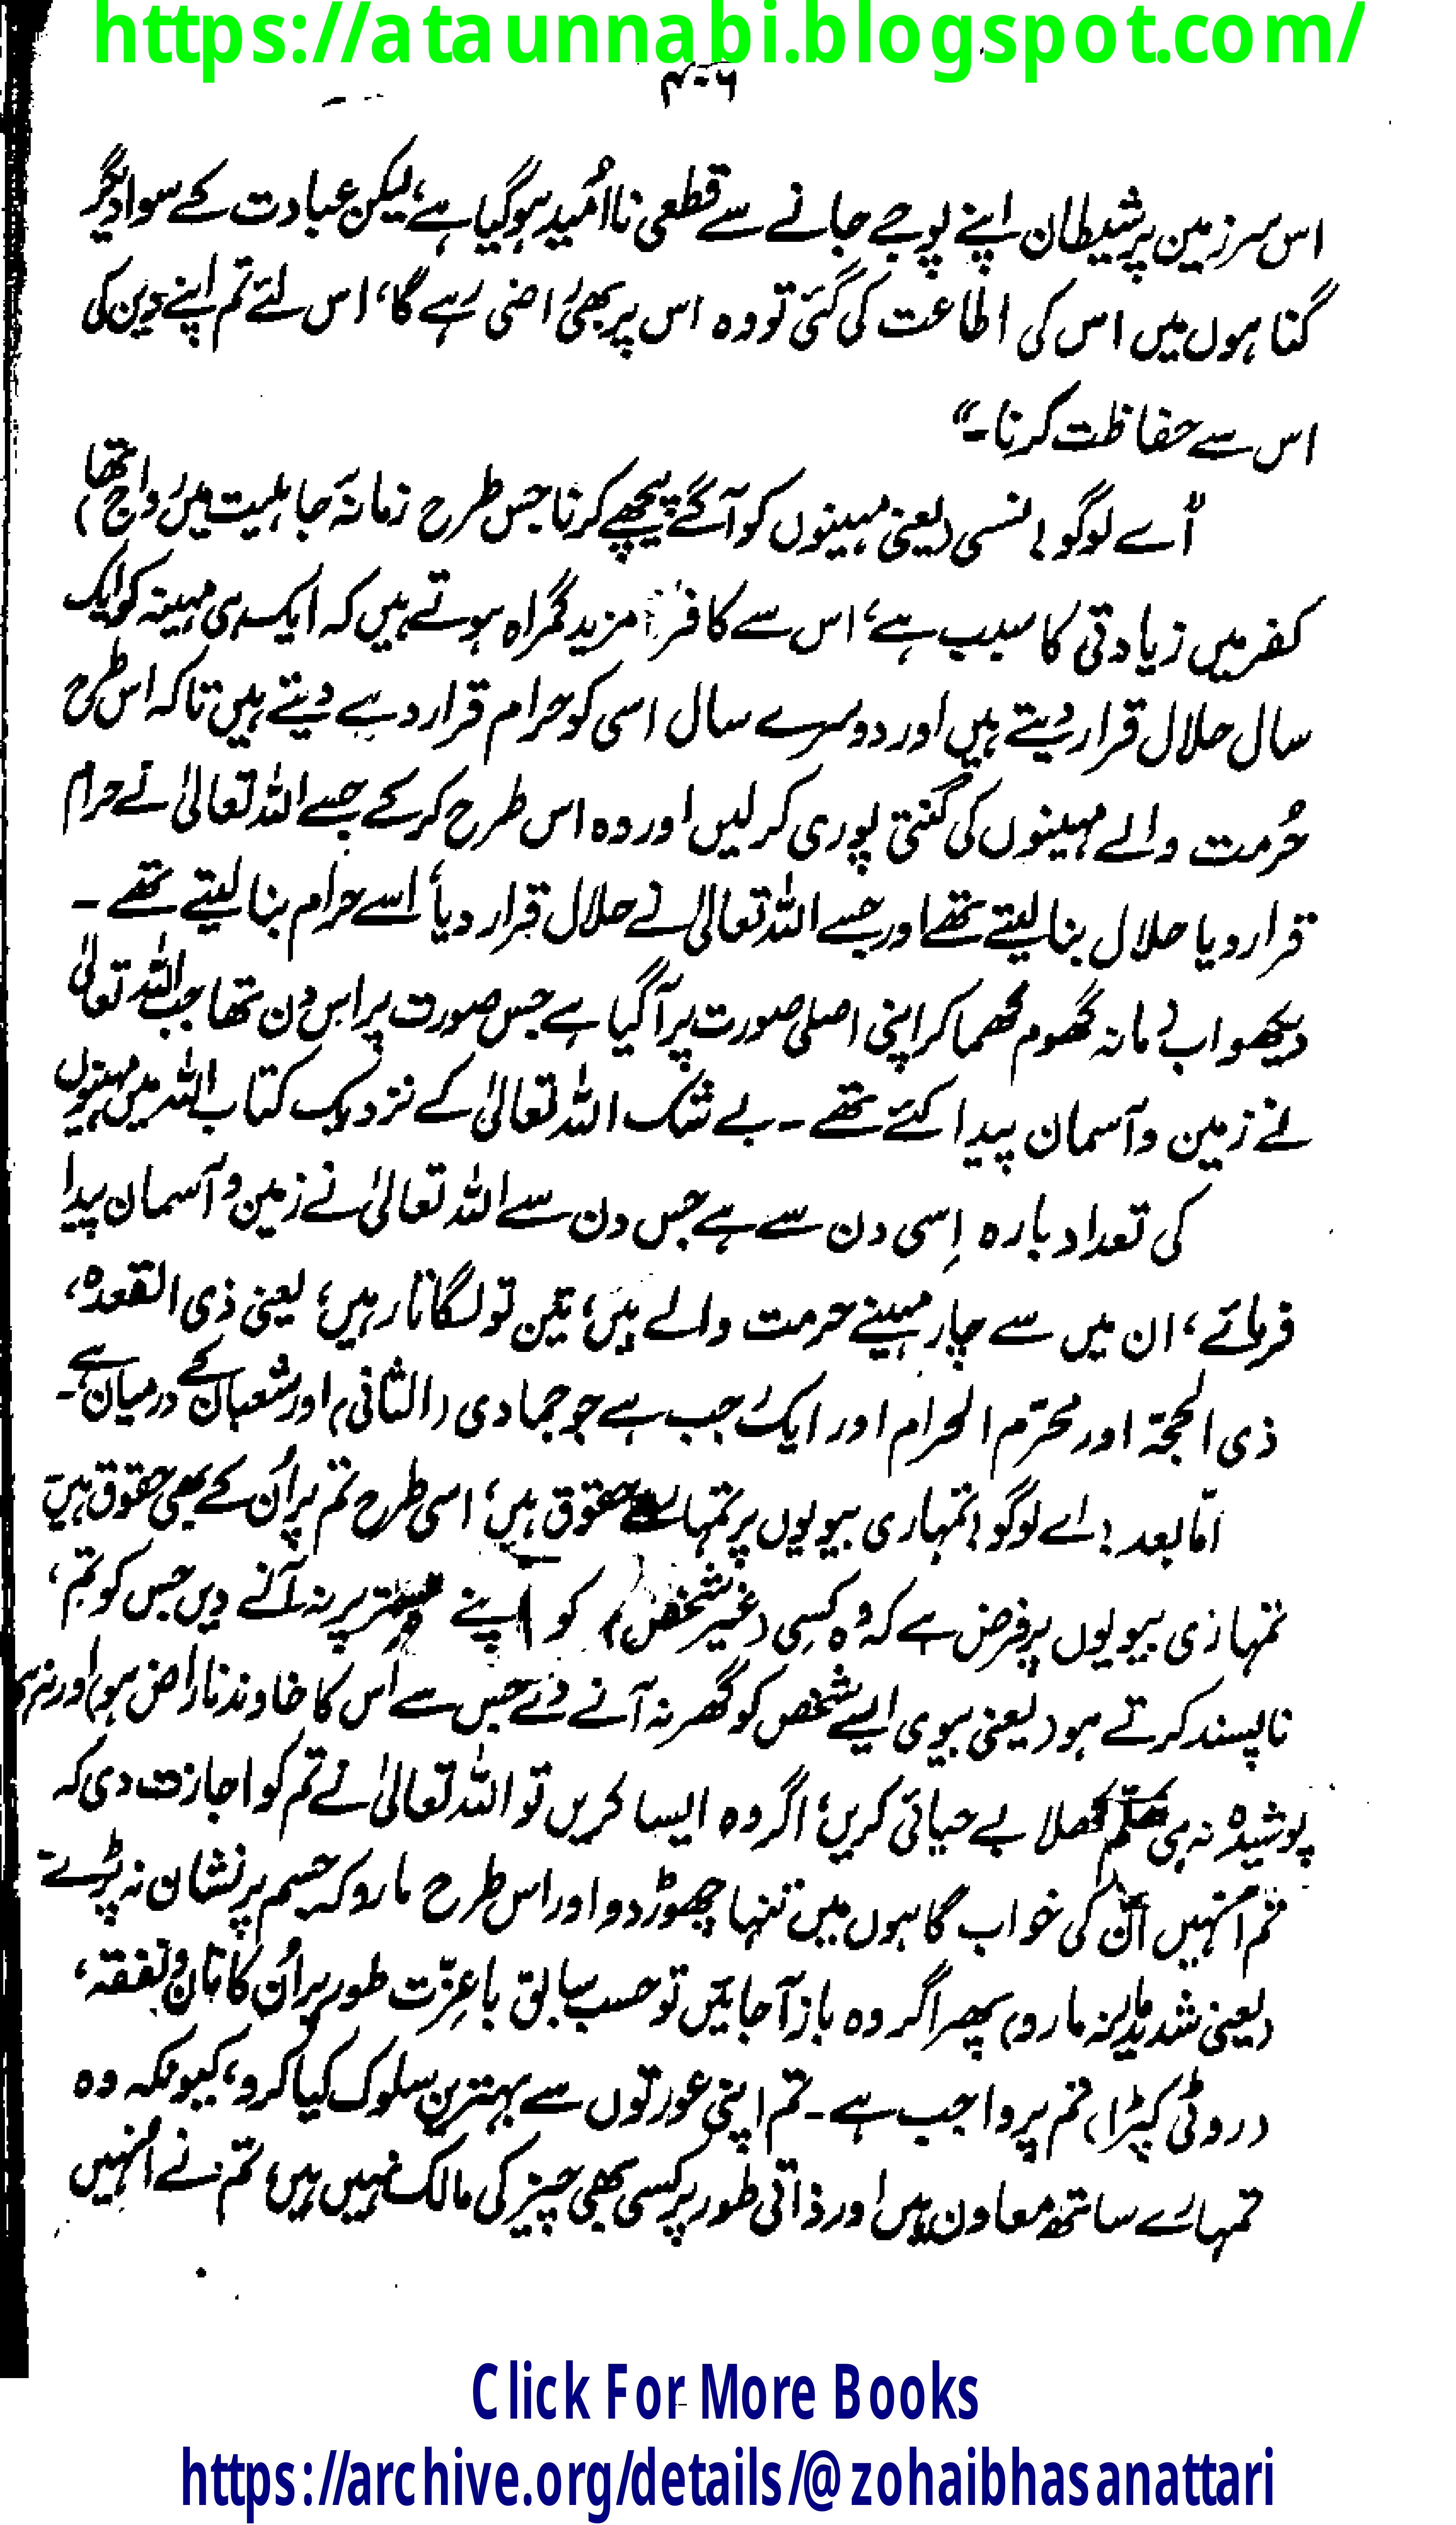 https://ataunnabi.blogspot.com/
۴۰۶
اس سرزمین پر شیطان اپنے پوجے جانے سے قطعی ناامُید ہوگیا ہے، لیکن عبادت کے سوا دیگر
گناہوں میں اس کی اطاعت کی گئی تو وہ اس پر بھی راضی رہے گا، اس لئے تم اپنے دین کی
اس سے حفاظت کرنا۔"
"اے لوگو! نسی (یعنی مہینوں کو آگے پیچھے کرنا جس طرح زمانۂ جاہلیت میں رواج تھا)
کفر میں زیادتی کا سبب ہے، اس سے کافر مزید گمراہ ہوتے ہیں کہ ایک ہی مہینہ کو ایک
سال حلال قرار دیتے ہیں اور دوسرے سال اسی کو حرام قرار دے دیتے ہیں تاکہ اس طرح
حُرمت والے مہینوں کی گنتی پوری کر لیں اور وہ اس طرح کر کے جسے اللہ تعالیٰ نے حرام
قرار دیا حلال بنا لیتے تھے اور جسے اللہ تعالیٰ نے حلال قرار دیا، اسے حرام بنا لیتے تھے۔
دیکھو اب زمانہ گھوم گھما کر اپنی اصلی صورت پر آگیا ہے جس صورت پر اس دن تھا جب اللہ تعالیٰ
نے زمین و آسمان پیدا کئے تھے۔ بے شک اللہ تعالیٰ کے نزدیک کتاب اللہ میں مہینوں
کی تعداد بارہ اِسی دن سے ہے جس دن سے اللہ تعالیٰ نے زمین و آسمان پیدا
فرمائے، ان میں سے چار مہینے حرمت والے ہیں، تین تو لگاتار ہیں، یعنی ذی القعدہ،
ذی الحجۃ اور محرّم الحرام اور ایک رجب ہے جو جمادی (الثانی) اور شعبان کے درمیان ہے۔
امّا بعد! اے لوگو! تمہاری بیویوں پر تمہارے حقوق ہیں، اسی طرح تم پر اُن کے بھی حقوق ہیں
تمہاری بیویوں پر فرض ہے کہ وہ کسی (غیر شخص) کو اپنے بستر پر نہ آنے دیں جس کو تم،
ناپسند کرتے ہو (یعنی بیوی ایسے شخص کو گھر نہ آنے دے جس سے اُس کا خاوند ناراض ہو) اور نہ ہی
پوشیدہ نہ ہی کھلم کھلا بے حیائی کریں، اگر وہ ایسا کریں تو اللہ تعالیٰ نے تم کو اجازت دی کہ
تم اُنہیں اُن کی خواب گاہوں میں تنہا چھوڑ دو اور اس طرح مارو کہ جسم پر نشان نہ پڑے
(یعنی شدید مار نہ مارو) پھر اگر وہ باز آجائیں تو حسب سابق باعزّت طور پر اُن کا نان و نفقہ،
(روٹی کپڑا) تم پر واجب ہے۔ تم اپنی عورتوں سے بہترین سلوک کیا کرو، کیونکہ وہ
تمہارے ساتھ معاون ہیں اور ذاتی طور پر کسی بھی چیز کی مالک نہیں ہیں، تم نے اُنہیں
Click For More Books
https://archive.org/details/@zohaibhasanattari